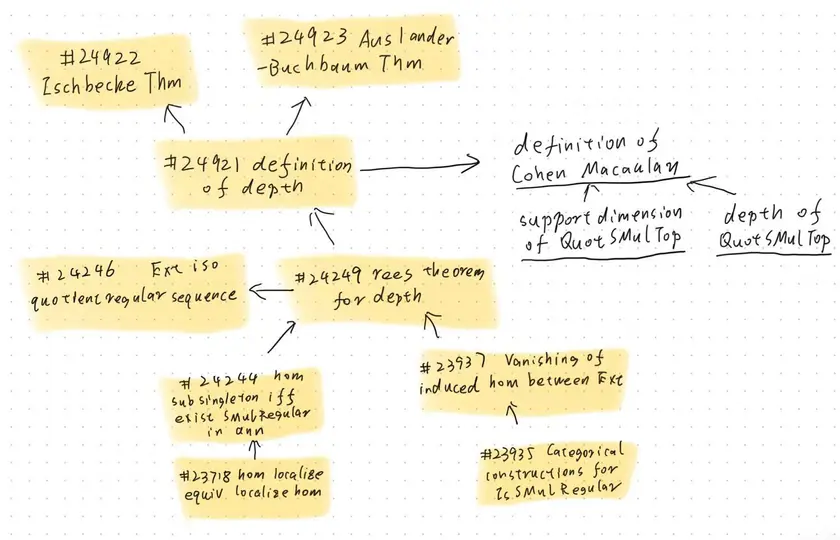 #24922
Ischbecke Thm
#24923 Auslander
-Buchbaum Thm
#24921 definition
of depth
definition of
Cohen Macaulay
support dimension
of QuotSMulTop
depth of
QuotSMulTop
#24246 Ext iso
quotient regular sequence
#24249 rees theorem
for depth
#24244 hom
subsingleton iff
exist SMulRegular
in ann
#23937 Vanishing of
induced hom between Ext
#23718 hom localize
equiv localize hom
#23935 Categorical
constructions for
IsSMulRegular